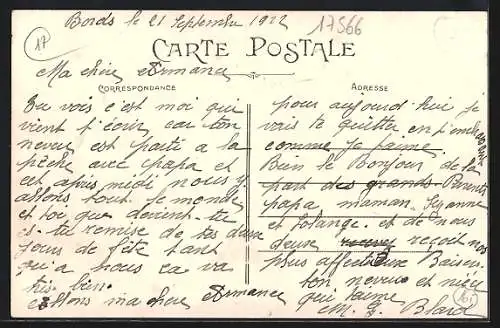 Bords le 21 Septembre 1922
17566
17
CARTE POSTALE
Ma chère Armance
CORRESPONDANCE
ADRESSE
Tu vois c'est moi qui
vient t'écrir, car ton
neveu est parti a la
pêche avec papa et
cet après midi nous y
allons tout le monde
et toi que devient-tu
es tu remise de tes deux
jours de fête tant
qu'a nous ca va
très bien.
allons ma chère Armance
pour aujourd'hui je
vais te quitter en t'
comme je t'aime
Bien le Bonjour de la
part des grands-Parents
papa maman Suzanne
et Solange. et de nous
deux reçoit nos
plus affectueux Baisers
ton neveu et nièce
qui t'aime
M. Blard